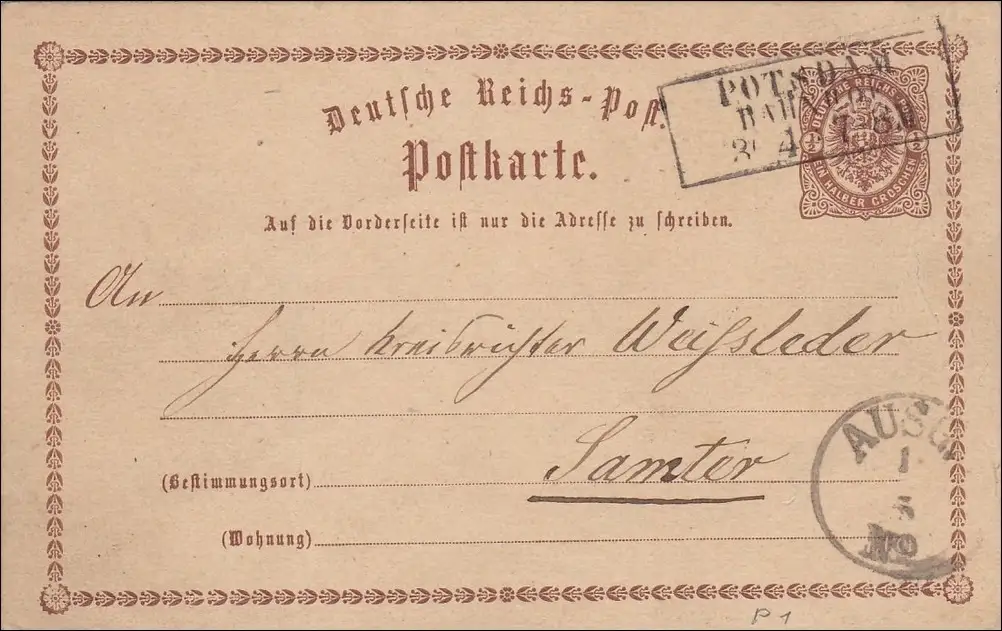 Deutsche Reichs-Post
Postkarte.
Auf die Vorderseite ist nur die Adresse zu schreiben.
POTSDAM
BAHNHOF
4 7-8N
DEUTSCHE REICHS
1/2 1/2
EIN HALBER GROSCHEN
An
Herrn Kreisrichter Weissleder
Samter
(Bestimmungsort)
(Wohnung)
AUSG
1
5
No
P1